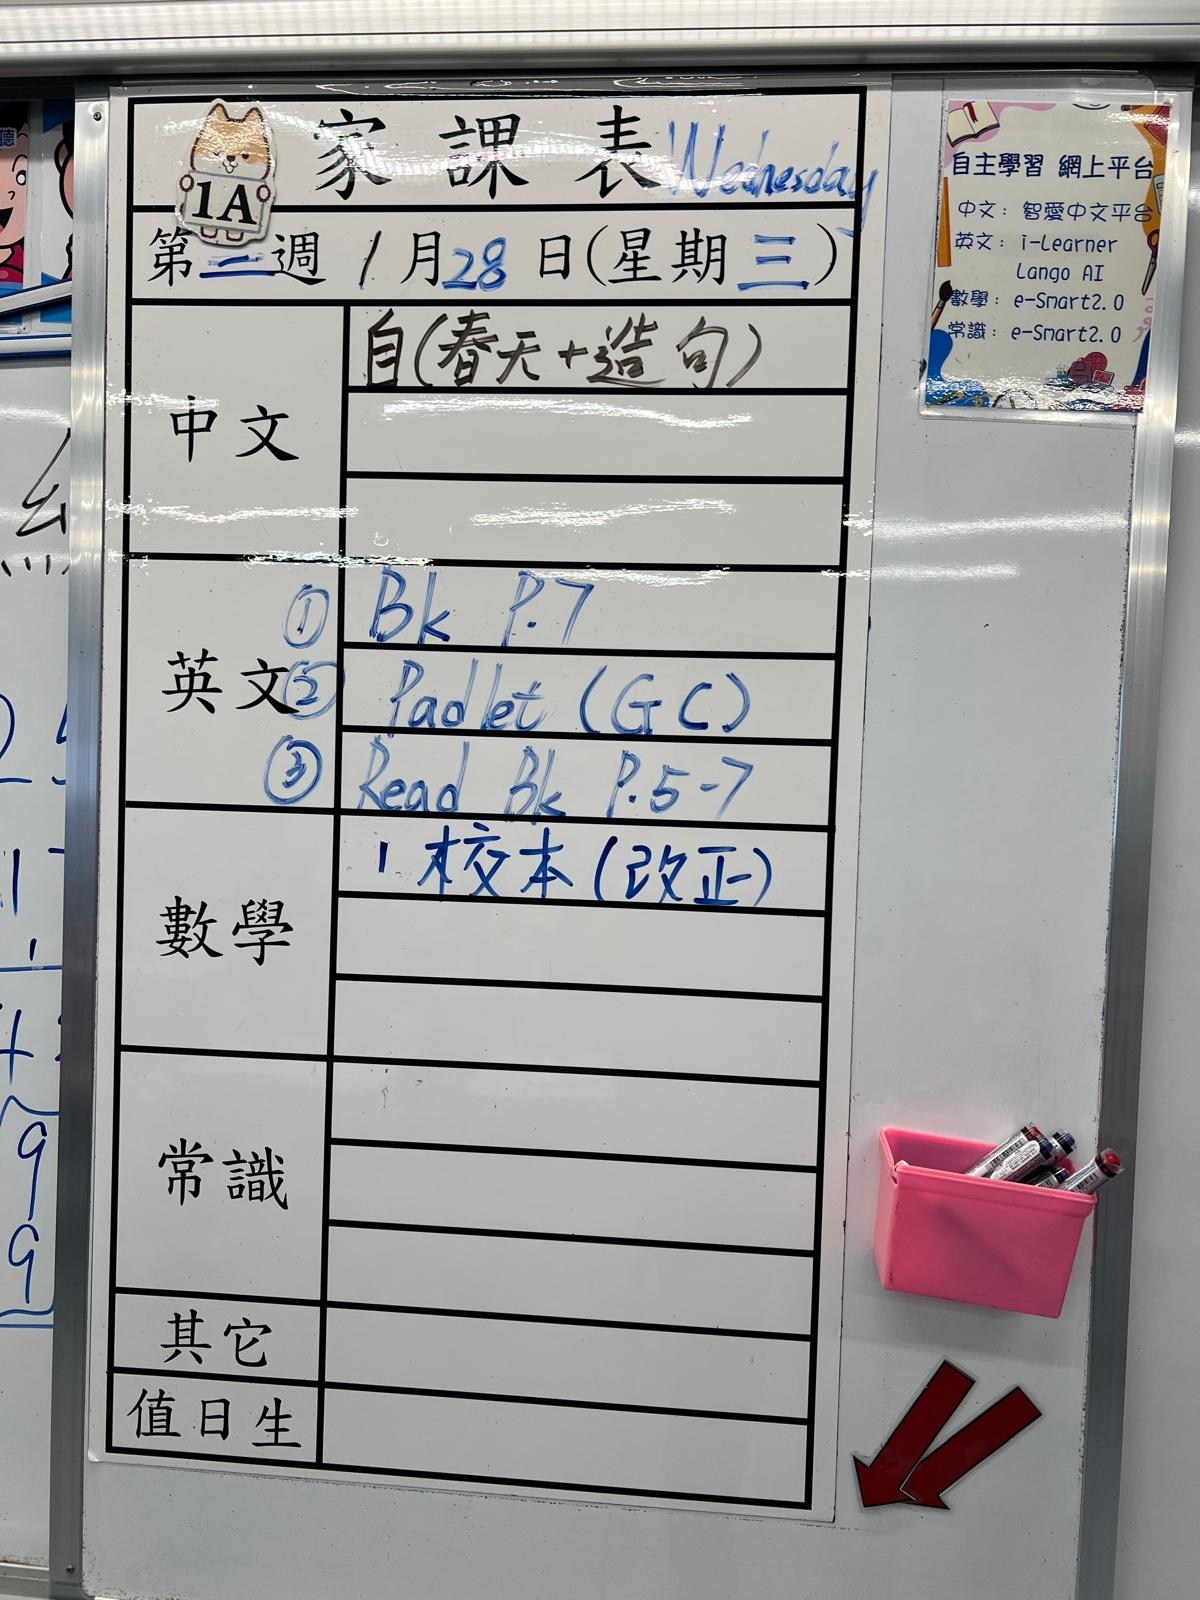 家課表 Wednesday
1A
第二週 1月28日(星期三)
中文
自(春天+造句)
英文
① Bk P.7
② Padlet (GC)
③ Read Bk P.5-7
數學
1 校本(改正)
常識
其它
值日生
自主學習 網上平台
中文: 智愛中文平台
英文: i-Learner
Lango AI
數學: e-Smart2.0
常識: e-Smart2.0
德
9
9